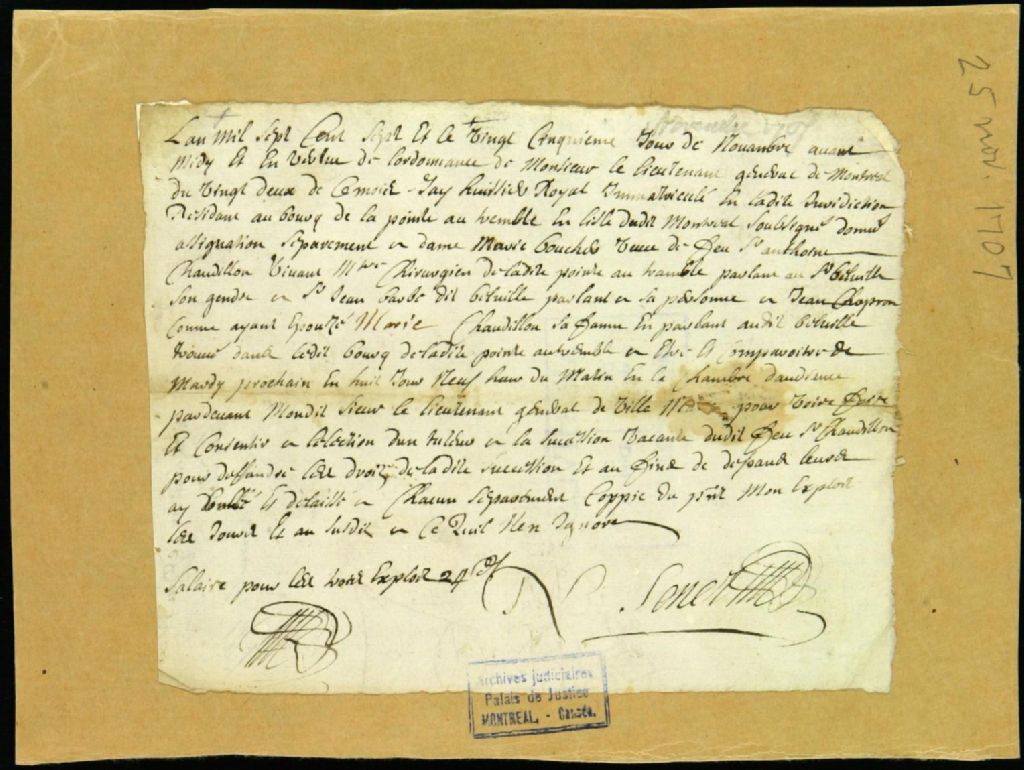 Lan Mil Sept Cent Sept Et le Vingt Cinquieme Jour de Nouambre auant
Midy Et En Vertue de Lordonnance de Monsieur le lieutenant general de Montreal
du Vingt deux de Cemois Jay huissier Royal Immatriculé En ladite Jurisdiction
Residant au bourg de la pointe au tremble En lisle dudit Montreal Soubsigné donné
assignation Separement a dame Marie bouché Veue de feu Sr anthoine
Chaudillon Viuant Mtre Chirurgien deladite pointe au tramble parlant au Sr beluille
Son gendre a Sr Jean barbe dit beluille parlant a Sa personne a Jean Chapron
Comme ayant Epouzé Marie Chaudillon Sa famme En parlant audit beluille
trouué dans ledit bourg deladite pointe autremble a Estre Et Comparoitre de
Mardy prochain En huit Jour Neuf heur du Matin En la Chambre daudience
pardeuant Mondit Sieur le lieutenant general de Ville pour Voire faire
Et Consentir a Lelection dun tuteur a la Succession Vacante dudit feu Sr Chaudillon
pour deffandre les droits deladite Succession Et au fins de despans
ay Et delaissé a Chacun Separement Coppie du pnt Mon Exploit
les Jour Et an Susdit a Ce quil Nen Ignore
Salaire pour les trois Exploit
Senet
25 nov. 1707
Archives judiciaires
Palais de Justice
MONTREAL. - Canada.